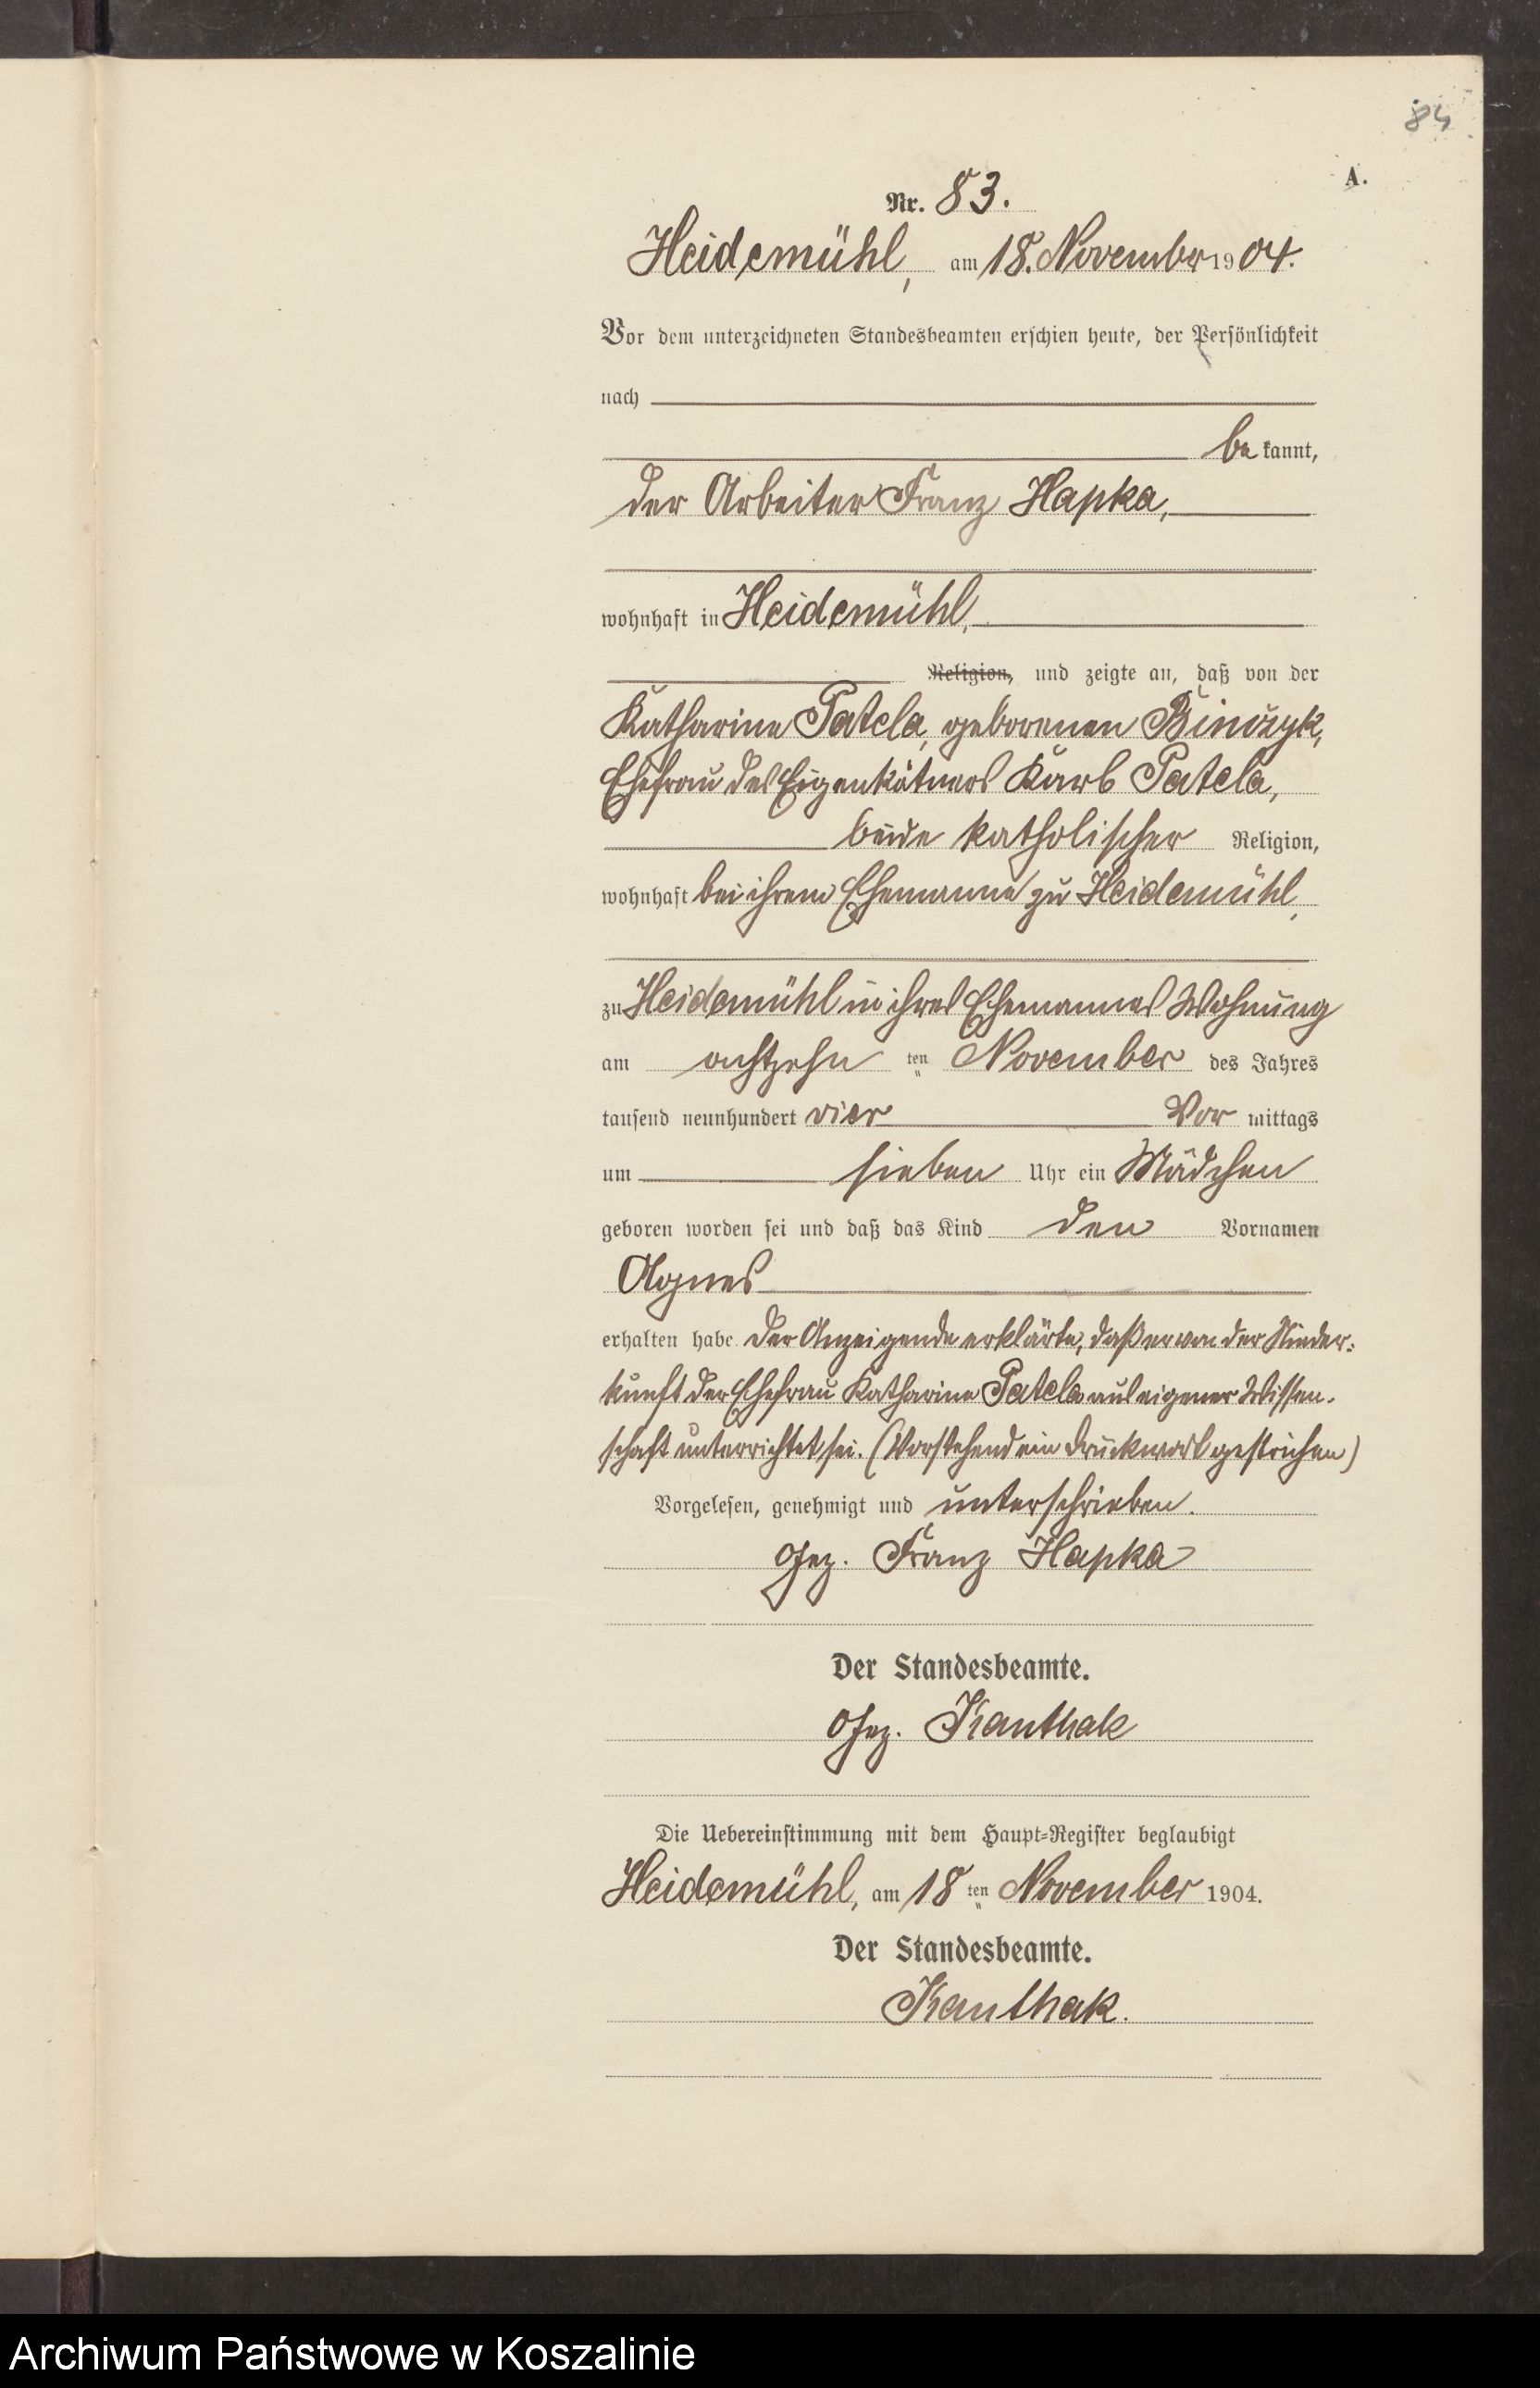 84
A.
Nr. 83.
Heidemühl, am 18. November 1904.
Vor dem unterzeichneten Standesbeamten erschien heute, der Persönlichkeit
nach
be kannt,
der Arbeiter Franz Hapka,
wohnhaft in Heidemühl,
Religion, und zeigte an, daß von der
Katharine Patela, geborenen Binczyk,
Ehefrau des Eigenkätners Karl Patela,
beide katholischer Religion,
wohnhaft bei ihrem Ehemanne zu Heidemühl,
zu Heidemühl in ihres Ehemannes Wohnung
am achtzehn ten November des Jahres
tausend neunhundert vier Vor mittags
um sieben Uhr ein Mädchen
geboren worden sei und daß das Kind den Vornamen
Agnes
erhalten habe. Der Anzeigende erklärte, daß er von der Nieder-
kunft der Ehefrau Katharine Patela aus eigener Wissen-
schaft unterrichtet sei. (Vorstehend ein Druckwort gestrichen)
Vorgelesen, genehmigt und unterschrieben.
Gez. Franz Hapka
Der Standesbeamte.
Gez. Kanthak
Die Uebereinstimmung mit dem Haupt-Register beglaubigt
Heidemühl, am 18 ten November 1904.
Der Standesbeamte.
Kanthak.
Archiwum Państwowe w Koszalinie